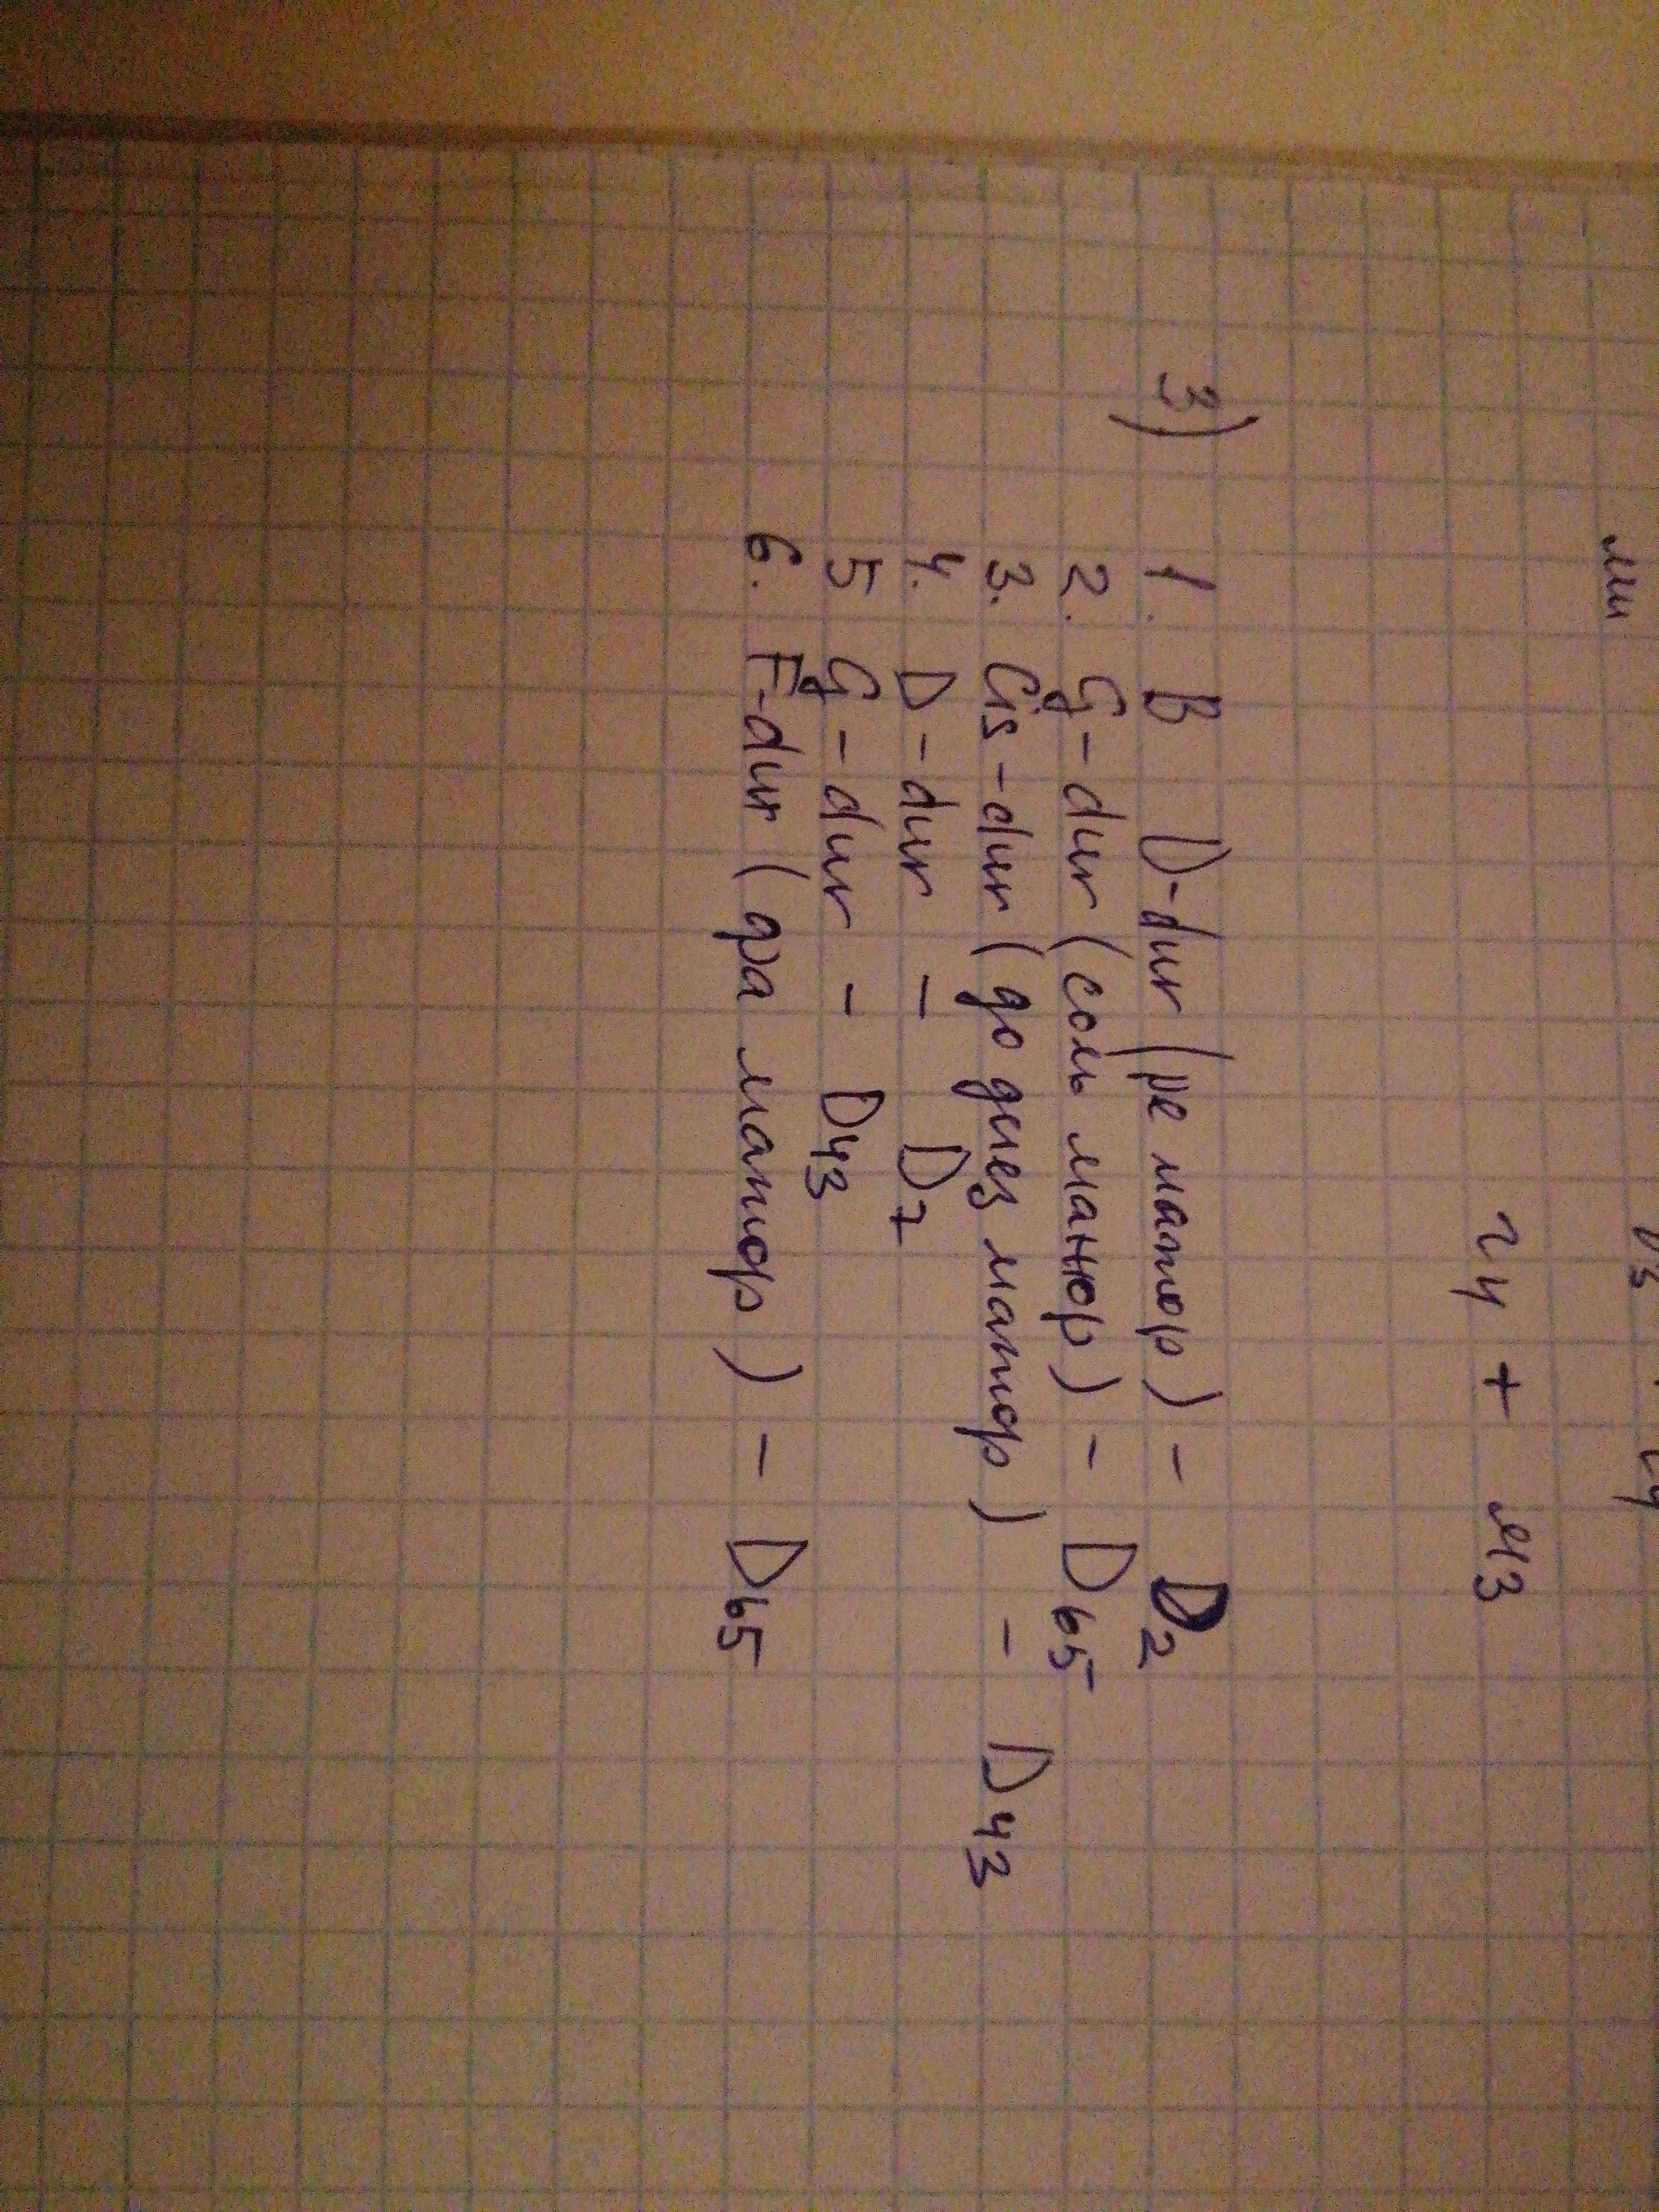 ми
ч4 + м3
3) 1. В D-dur (ре мажор) - D2
2. G-dur (соль мажор) - D65
3. Cis-dur (до диез мажор) - D43
4. D-dur - D7
5 G-dur - D43
6. F-dur (фа мажор) - D65